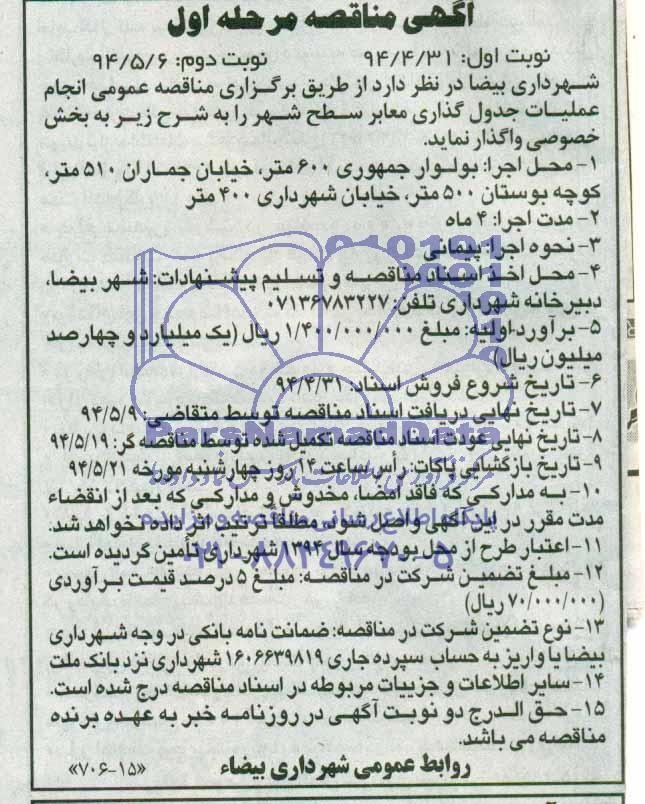 آگهی مناقصه مرحله اول
نوبت اول: ۹۴/۴/۳۱ نوبت دوم: ۹۴/۵/۶
شهرداری بیضا در نظر دارد از طریق برگزاری مناقصه عمومی انجام
عملیات جدول گذاری معابر سطح شهر را به شرح زیر به بخش
خصوصی واگذار نماید.
۱- محل اجرا: بولوار جمهوری ۶۰۰ متر، خیابان جماران ۵۱۰ متر،
کوچه بوستان ۵۰۰ متر، خیابان شهرداری ۴۰۰ متر
۲- مدت اجرا: ۴ ماه
۳- نحوه اجرا: پیمانی
۴- محل اخذ اسناد مناقصه و تسلیم پیشنهادات: شهر بیضا،
دبیرخانه شهرداری تلفن: ۰۷۱۳۶۷۸۳۲۲۷
۵- برآورد اولیه: مبلغ ۱/۴۰۰/۰۰۰/۰۰۰ ریال (یک میلیارد و چهارصد
میلیون ریال)
۶- تاریخ شروع فروش اسناد: ۹۴/۴/۳۱
۷- تاریخ نهایی دریافت اسناد مناقصه توسط متقاضی: ۹۴/۵/۹
۸- تاریخ نهایی عودت اسناد مناقصه تکمیل شده توسط مناقصه گر: ۹۴/۵/۱۹
۹- تاریخ بازگشایی پاکات: رأس ساعت ۱۴ روز چهارشنبه مورخه ۹۴/۵/۲۱
۱۰- به مدارکی که فاقد امضا، مخدوش و مدارکی که بعد از انقضاء
مدت مقرر در این آگهی واصل شود، مطلقاً ترتیب اثر داده نخواهد شد.
۱۱- اعتبار طرح از محل بودجه سال ۱۳۹۴ شهرداری تأمین گردیده است.
۱۲- مبلغ تضمین شرکت در مناقصه: مبلغ ۵ درصد قیمت برآوردی
(۷۰/۰۰۰/۰۰۰ ریال)
۱۳- نوع تضمین شرکت در مناقصه: ضمانت نامه بانکی در وجه شهرداری
بیضا یا واریز به حساب سپرده جاری ۱۶۰۶۶۳۹۸۱۹ شهرداری نزد بانک ملت
۱۴- سایر اطلاعات و جزییات مربوطه در اسناد مناقصه درج شده است.
۱۵- حق الدرج دو نوبت آگهی در روزنامه خبر به عهده برنده
مناقصه می باشد.
روابط عمومی شهرداری بیضاء «۷۰۶-۱۵»
ParsNamadData
پایگاه اطلاع رسانی مناقصه و مزایده
۰۲۱-۸۸۳۴۹۶۷۰-۵